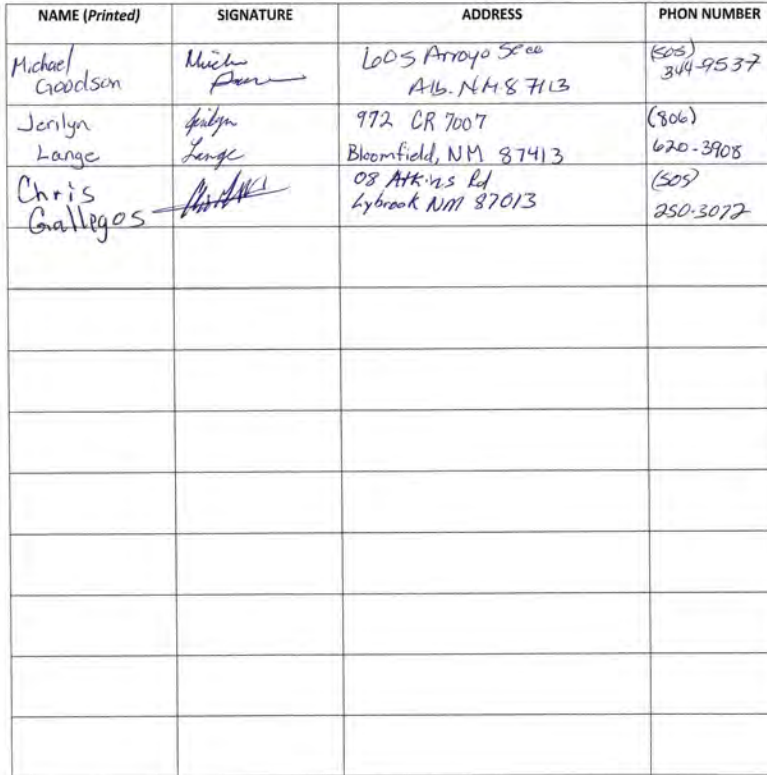 NAME (Printed) SIGNATURE ADDRESS PHON NUMBER
Michael
Goodson
605 Arroyo Seco
Alb. NM 87113
(505)
344-9537
Jerilyn
Lange
Jerilyn
Lange
972 CR 7007
Bloomfield, NM 87413
(806)
620-3908
Chris
Gallegos
08 Atkins Rd
Lybrook NM 87013
(505)
250-3072